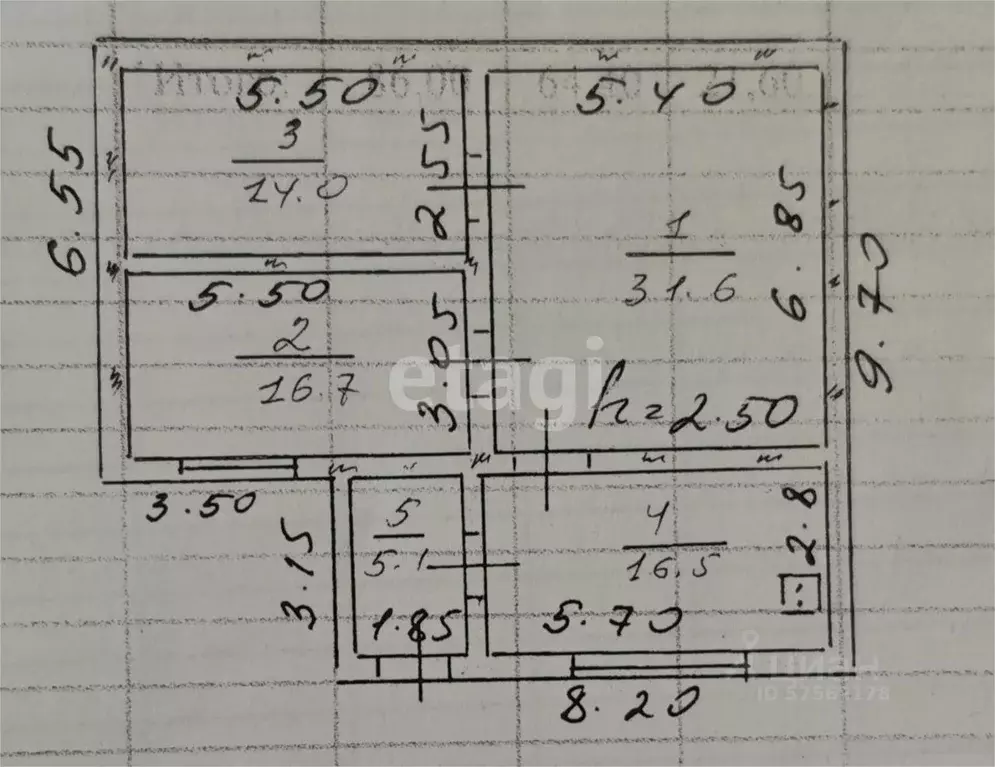 5.50
5.40
3
14.0
2.55
6.55
1
31.6
6.85
9.70
5.50
2
16.7
3.05
h=2.50
etagi
3.50
5
5.1
3.15
1.85
4
16.5
2.8
5.70
8.20
циан